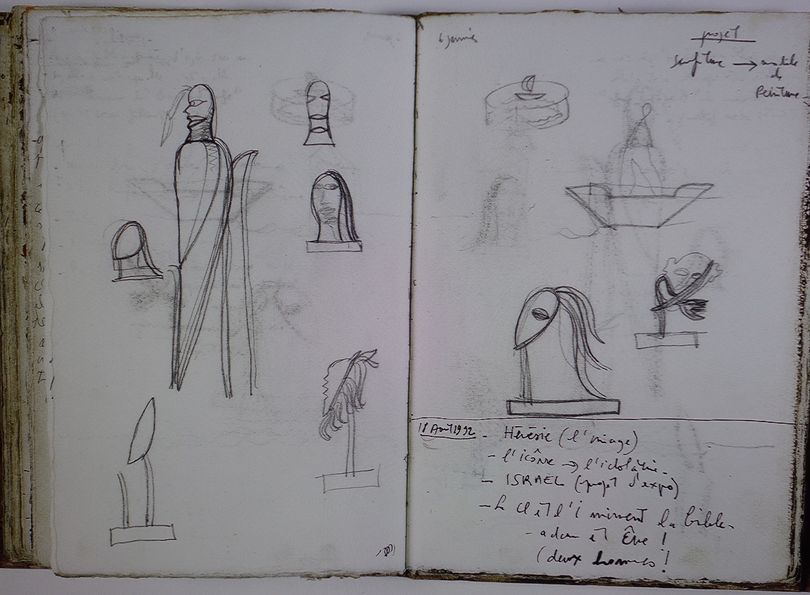 projet
sculpture → modèle
de
Peinture
18 Août 1992 - Hérésie (l'image)
- l'icône → l'idolâtrie.
- ISRAEL (projet d'expo)
- et l' la bible.
- adam et Ève !
(deux hommes !